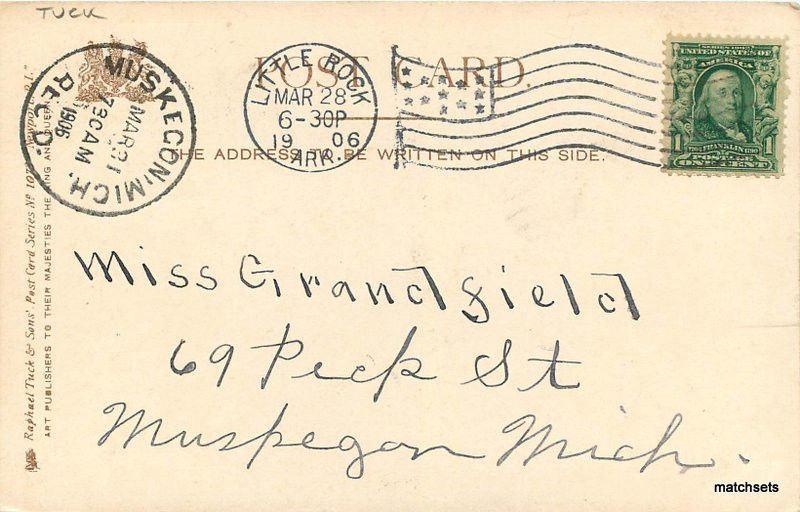 TUCK
POST CARD.
THE ADDRESS TO BE WRITTEN ON THIS SIDE.
MUSKEGON, MICH.
MAR 31
730AM
1906
REC'D.
LITTLE ROCK
MAR 28
6-30P
19 06
ARK.
SERIES 1902
UNITED STATES OF AMERICA
FRANKLIN
1 1
POSTAGE
ONE CENT
Miss Grandfield
69 Peck St
Muskegon Mich.
Raphael Tuck & Sons' Post Card Series Nº 107
ART PUBLISHERS TO THEIR MAJESTIES THE KING AND QUEEN
matchsets